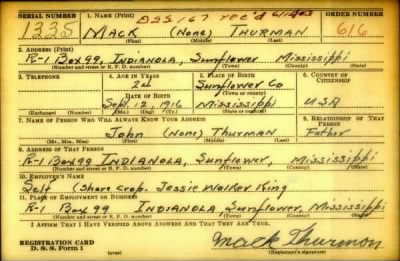 SERIAL NUMBER 1. NAME (Print) DSS 167 rec'd ORDER NUMBER
1335 MACK (None) THURMAN 616
(First) (Middle) (Last)
2. ADDRESS (Print)
R-1 Box 99, INDIANOLA, Sunflower Mississippi
(Number and street or R. F. D. number) (Town) (County) (State)
3. TELEPHONE 4. AGE IN YEARS 5. PLACE OF BIRTH 6. COUNTRY OF CITIZENSHIP
24 Sunflower Co
DATE OF BIRTH (Town or county)
Sept. 12, 1916 Mississippi USA
(Exchange) (Number) (Mo.) (Day) (Yr.) (State or country)
7. NAME OF PERSON WHO WILL ALWAYS KNOW YOUR ADDRESS 8. RELATIONSHIP OF THAT PERSON
John (None) Thurman Father
(Mr., Mrs., Miss) (First) (Middle) (Last)
9. ADDRESS OF THAT PERSON
R-1 Box 99 INDIANOLA, Sunflower, Mississippi
(Number and street or R. F. D. number) (Town) (County) (State)
10. EMPLOYER'S NAME
Self (Share crop. Jessie Walker King
11. PLACE OF EMPLOYMENT OR BUSINESS
R-1 Box 99 INDIANOLA, Sunflower, Mississippi
(Number and street or R. F. D. number) (Town) (County) (State)
I AFFIRM THAT I HAVE VERIFIED ABOVE ANSWERS AND THAT THEY ARE TRUE.
REGISTRATION CARD
D. S. S. Form 1 (over) Mack Thurmon
(Registrant's signature)